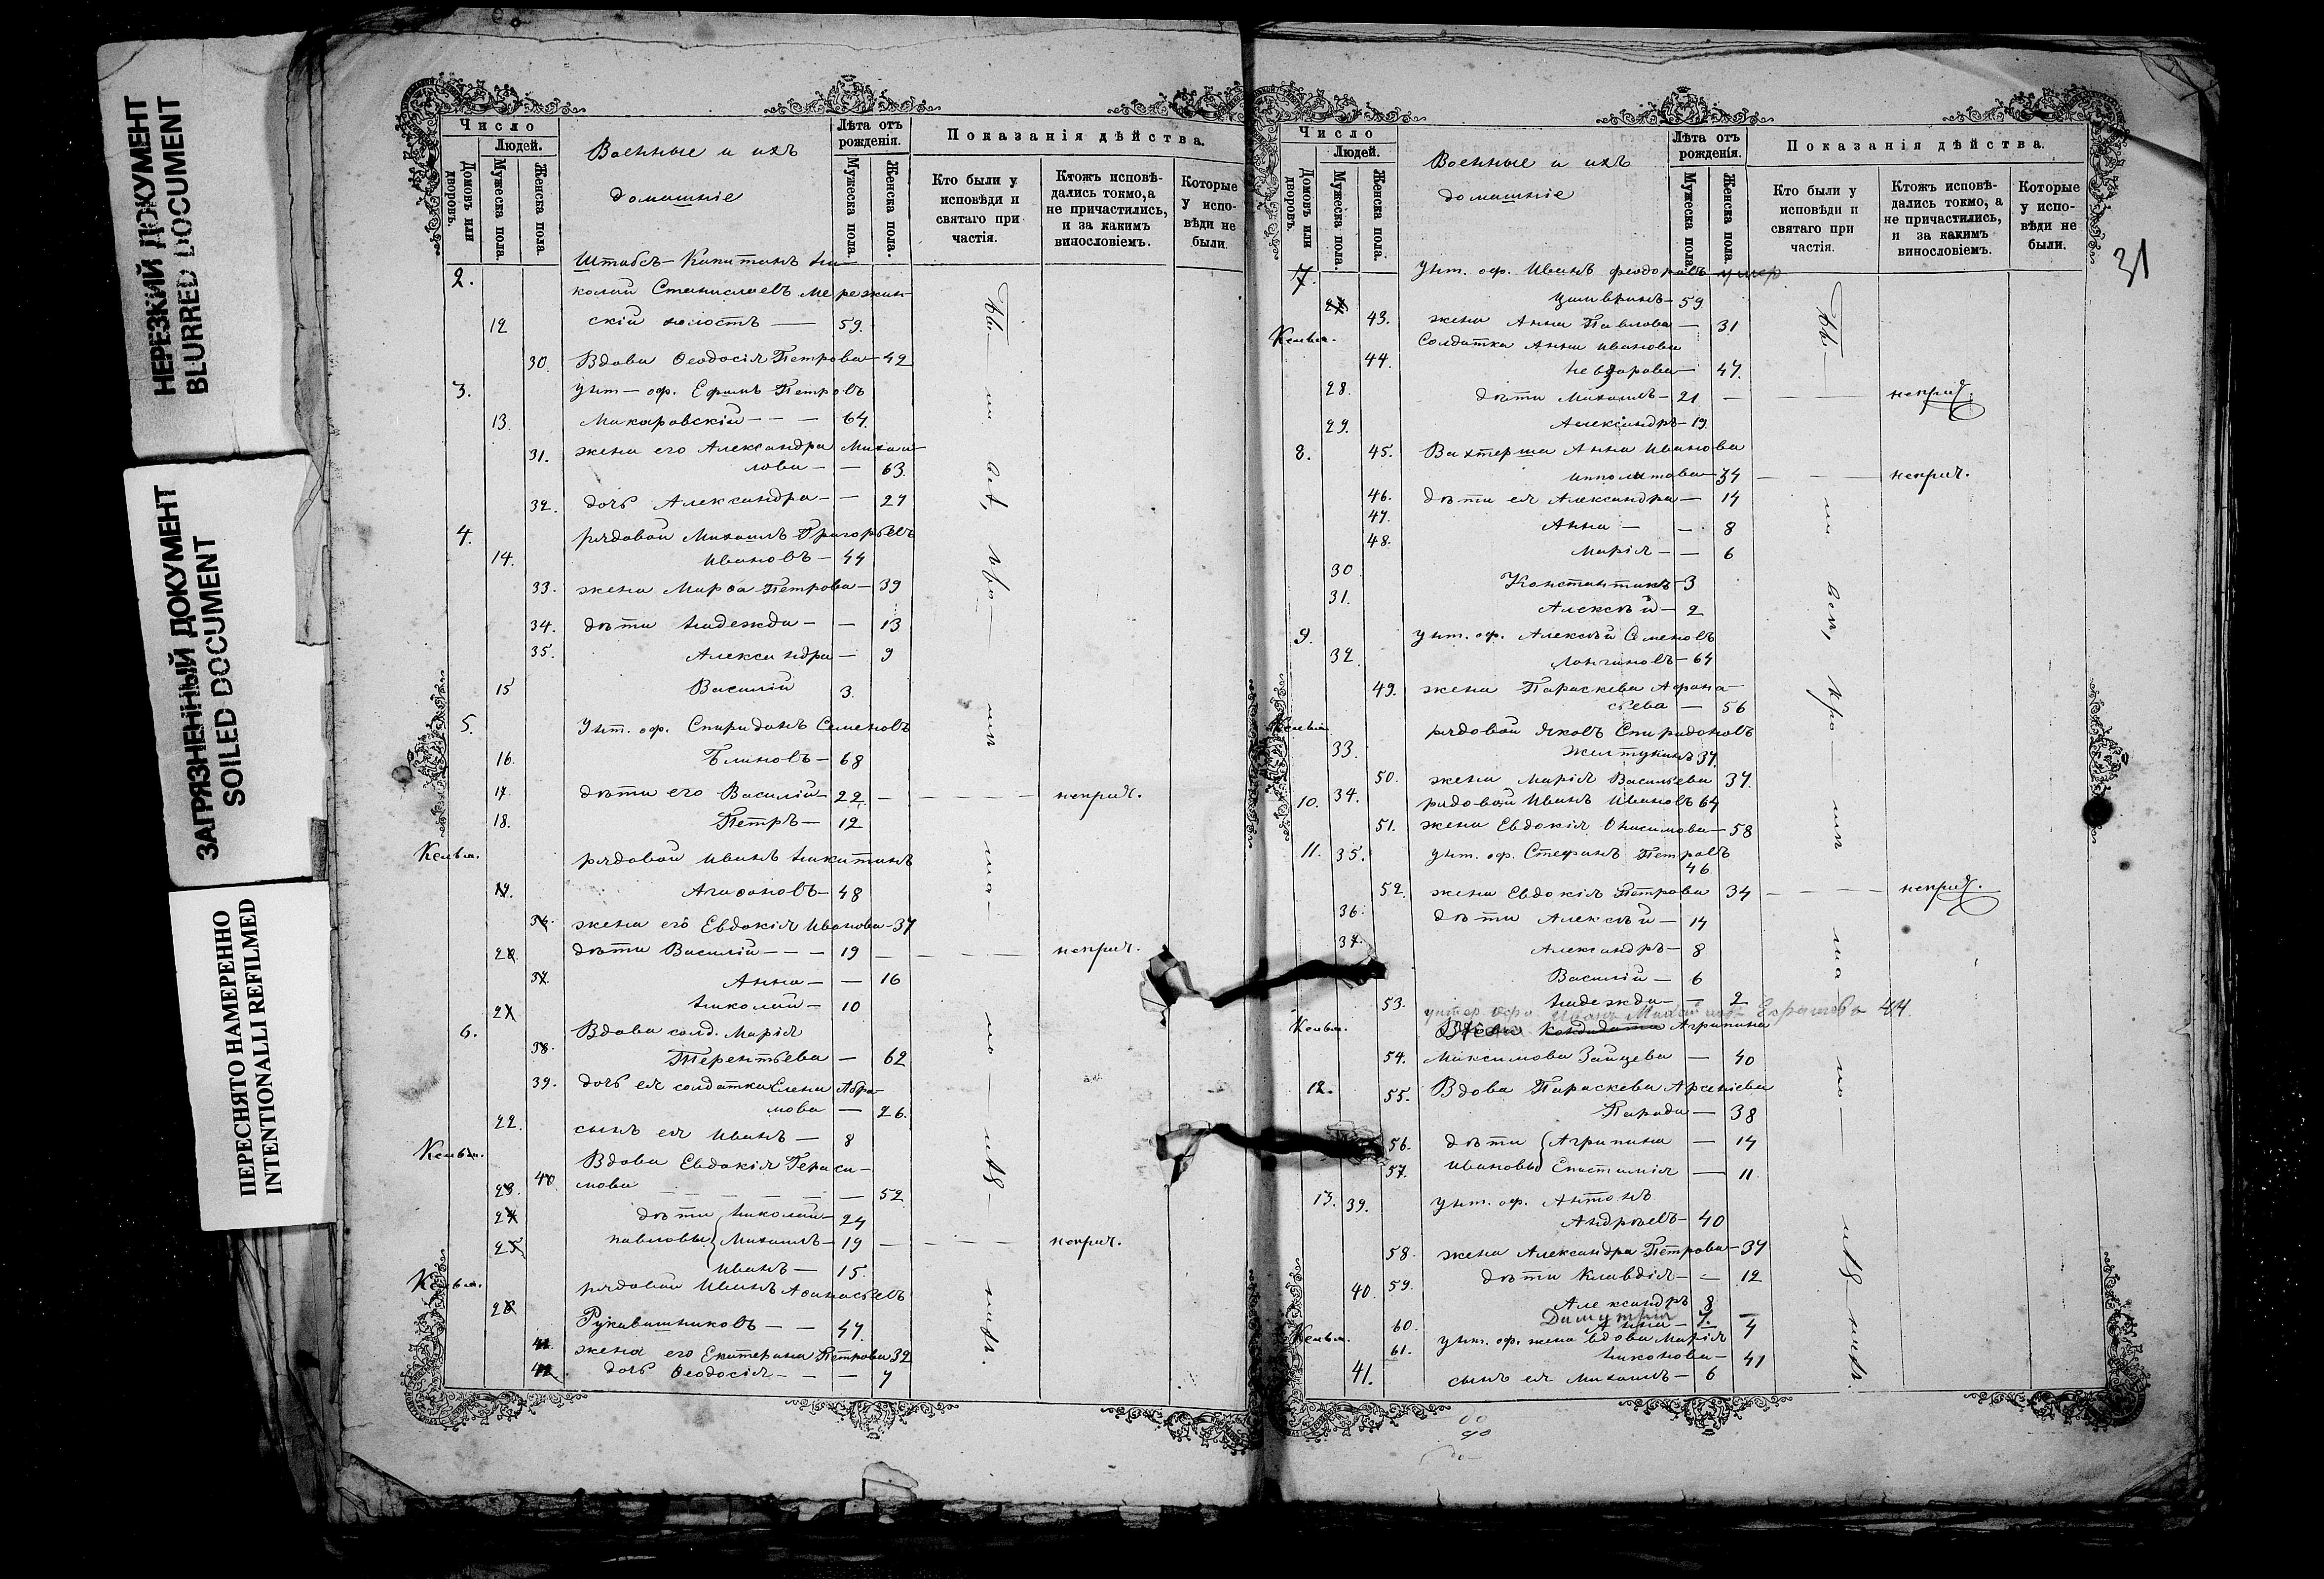 НЕРЕЗКИЙ ДОКУМЕНТ
BLURRED DOCUMENT
ЗАГРЯЗНЕННЫЙ ДОКУМЕНТ
SOILED DOCUMENT
ПЕРЕСНЯТО НАМЕРЕННО
INTENTIONALLI REFILMED
Число
Людей.
Домовъ или дворовъ.
Мужеска пола.
Женска пола.
Военные и ихъ
домашніе
Лѣта отъ рожденія.
Мужеска пола.
Женска пола.
Показанія дѣйства.
Кто были у исповѣди и святаго причастія.
Ктожъ исповѣдались токмо, а не причастились, и за какимъ винословіемъ.
Которые у исповѣди не были.
2. Штабсъ-Капитанъ Ни-
колай Станиславъ
12 скій холостъ — 59.
30. Вдова Ѳеодосія Петрова — 42
3. Унт-оф. Ефимъ Петровъ
13. Макаровскій - - - 64.
31. жена его Александра Михаи-
лова - - 63.
32. дочь Александра - - 27
4. рядовой Михаилъ Григорьевъ
14. Ивановъ - 44
33. жена Марѳа Петрова - 39
34. дѣти Надежда - - 13
35. Александра - 9
15 Василій 3.
5. Унт. оф. Спиридонъ Семеновъ
16. Блиновъ - 68
17. дѣти его Василій - 22 - неприч.
18. Петръ - 12
рядовой Иванъ Никитинъ
19. Агаѳоновъ - 48
36. жена его Евдокія Иванова - 37
20. дѣти Василій - - - 19 - неприч.
37 Анна - - 16
21 Николай - 10
6. Вдова солд. Марія
38. Терентьева - 62
39. дочь ея солдатка Елена Абра-
мова - 26.
22. сынъ ея Иванъ - 8
Вдова Евдокія Гераси-
23. 40. мова - 52.
24 дѣти Николай - 24
25. Павловы Михаилъ - 19 - неприч.
Иванъ - 15.
рядовой Иванъ Аѳанасьевъ
26 Рукавишниковъ - - 47.
41. жена его Екатерина Петрова 32
42. дочь Ѳеодосія - - - 7
Число
Людей.
Домовъ или дворовъ.
Мужеска пола.
Женска пола.
Военные и ихъ
домашніе
Лѣта отъ рожденія.
Мужеска пола.
Женска пола.
Показанія дѣйства.
Кто были у исповѣди и святаго причастія.
Ктожъ исповѣдались токмо, а не причастились, и за какимъ винословіемъ.
Которые у исповѣди не были.
31
7. Унт. оф. Иванъ Феодоровъ умер
27 59
43. жена Анна Павлова - 31
Солдатка Анна Иванова
44. 47.
28. дѣти Михаилъ - 21 - неприч.
29. Александръ - 19
8. 45. Вахтерша Анна Иванова
Ипполитова - 34 - неприч.
46. дѣти ея Александра - 14
47. Анна - - 8
48. Марія - - 6
30 Константинъ - 3
31. Алексѣй - 2
9. унт. оф. Алексѣй Семеновъ
32 Лонгиновъ - 64
49. жена Параскева Афана-
сьева - 56
рядовой Яковъ Спиридоновъ
33. Желтухинъ 37.
50. жена Марія Васильева 37.
10. 34. рядовой Иванъ Ивановъ 64
51. жена Евдокія Онисимова - 58
11. 35. унт. оф. Стефанъ Петровъ
46
52. жена Евдокія Петрова 34 - неприч.
36. дѣти Алексѣй - 14
37. Александръ - 8
Василій - 6
53. Надежда - - 2
унтер офи. Иванъ 44.
Агрипина
54. Максимова Зайцева - 40
12. 55. Вдова Параскева Арсеніева
38
56. дѣти Агрипина - 14
57. Ивановы Епистимія - 11.
13. 39. унт. оф. Антонъ
Андреевъ - 40
58. жена Александра Петрова - 37
59. дѣти Клавдія - - 12
40. Александръ 8
Димитрій 7.
60. Анна - 4
унт. оф. жена вдова Марія
61. Никонова - 41
41. сынъ ея Михаилъ - 6